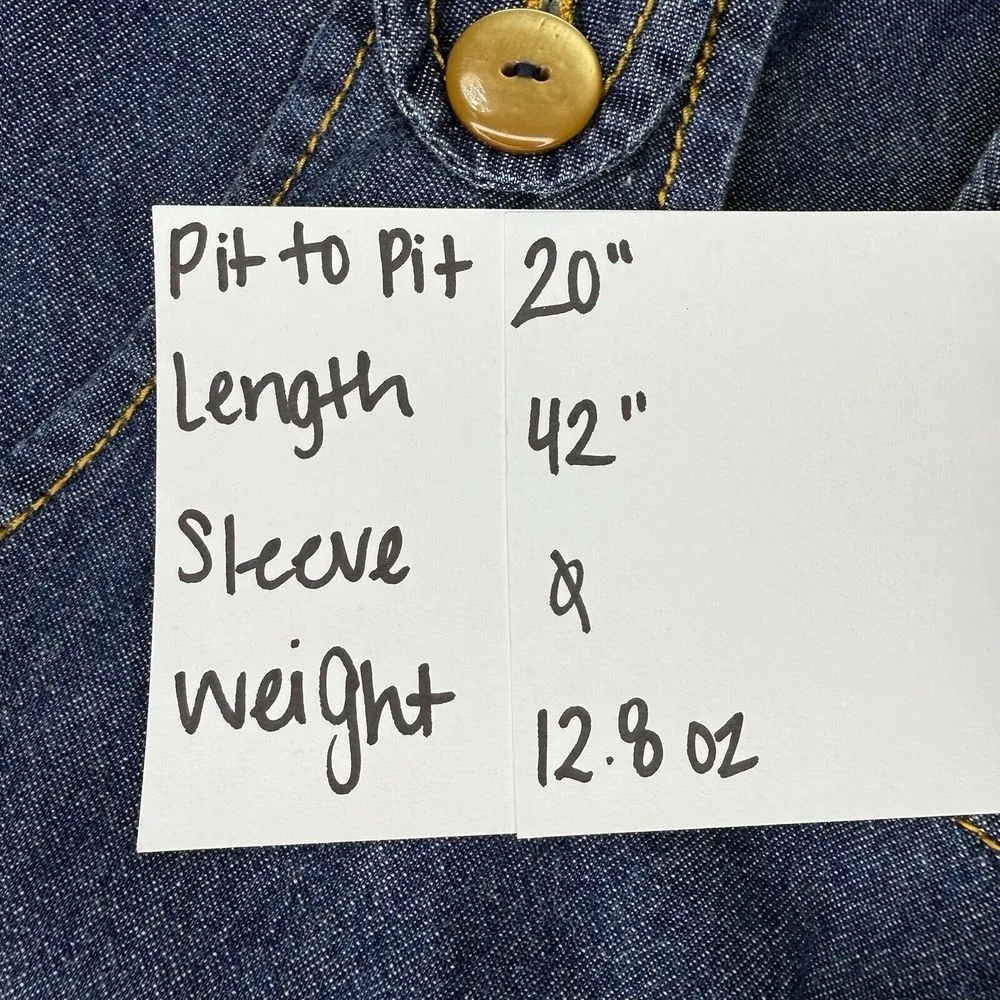 Pit to Pit 20"
Length 42"
Sleeve Ø
Weight 12.8 oz